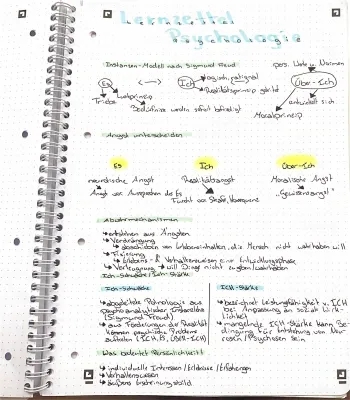 Lernzettel
Psychologie
Instanzen-Modell nach Sigmund Freud
pos. Werte u. Normen
Es
Ich
logisch, rational
Über-Ich
Realitätsprinzip
Triebe
Lustprinzip
entwickelt sich
Bedürfnisse werden sofort befriedigt
Moralprinzip
Angst unterscheiden
Es
Ich
Über-Ich
neurotische Angst
Realitätsangst
Moralische Angst
Angst vor Ausbrechen des Es
"Gewissensangst"
Furcht vor Strafe, Konsequenz
Abwehrmechanismen
entstehen aus Ängsten
Verdrängung
abschieben von Erlebnisinhalten, die Mensch nicht wahrhaben will
Fixierung
Erlebens- & Verhaltensweisen einer Entwicklungsphase
Verleugnung → will Dinge nicht zugeben/wahrhaben
Ich-Schwäche / Ich-Stärke
Ich-Schwäche
ICH-Stärke
abgeleitete Pathologie aus
psychoanalytischer
(Sigmund Freud)
aus Forderungen der Realität
können psychische Probleme
auftreten (ICH, ES, ÜBER-ICH)
bezeichnet Leistungsfähigkeit v. ICH
bei Anpassung an soziale Wirk-
lichkeit
mangelnde ICH-Stärke kann Be-
dingung für Entstehung von Neu-
rosen/Psychosen sein
Was bedeutet Persönlichkeit?
individuelle Interessen / Erlebnisse / Erfahrungen
Verhaltensweisen
äußeres Erscheinungsbild